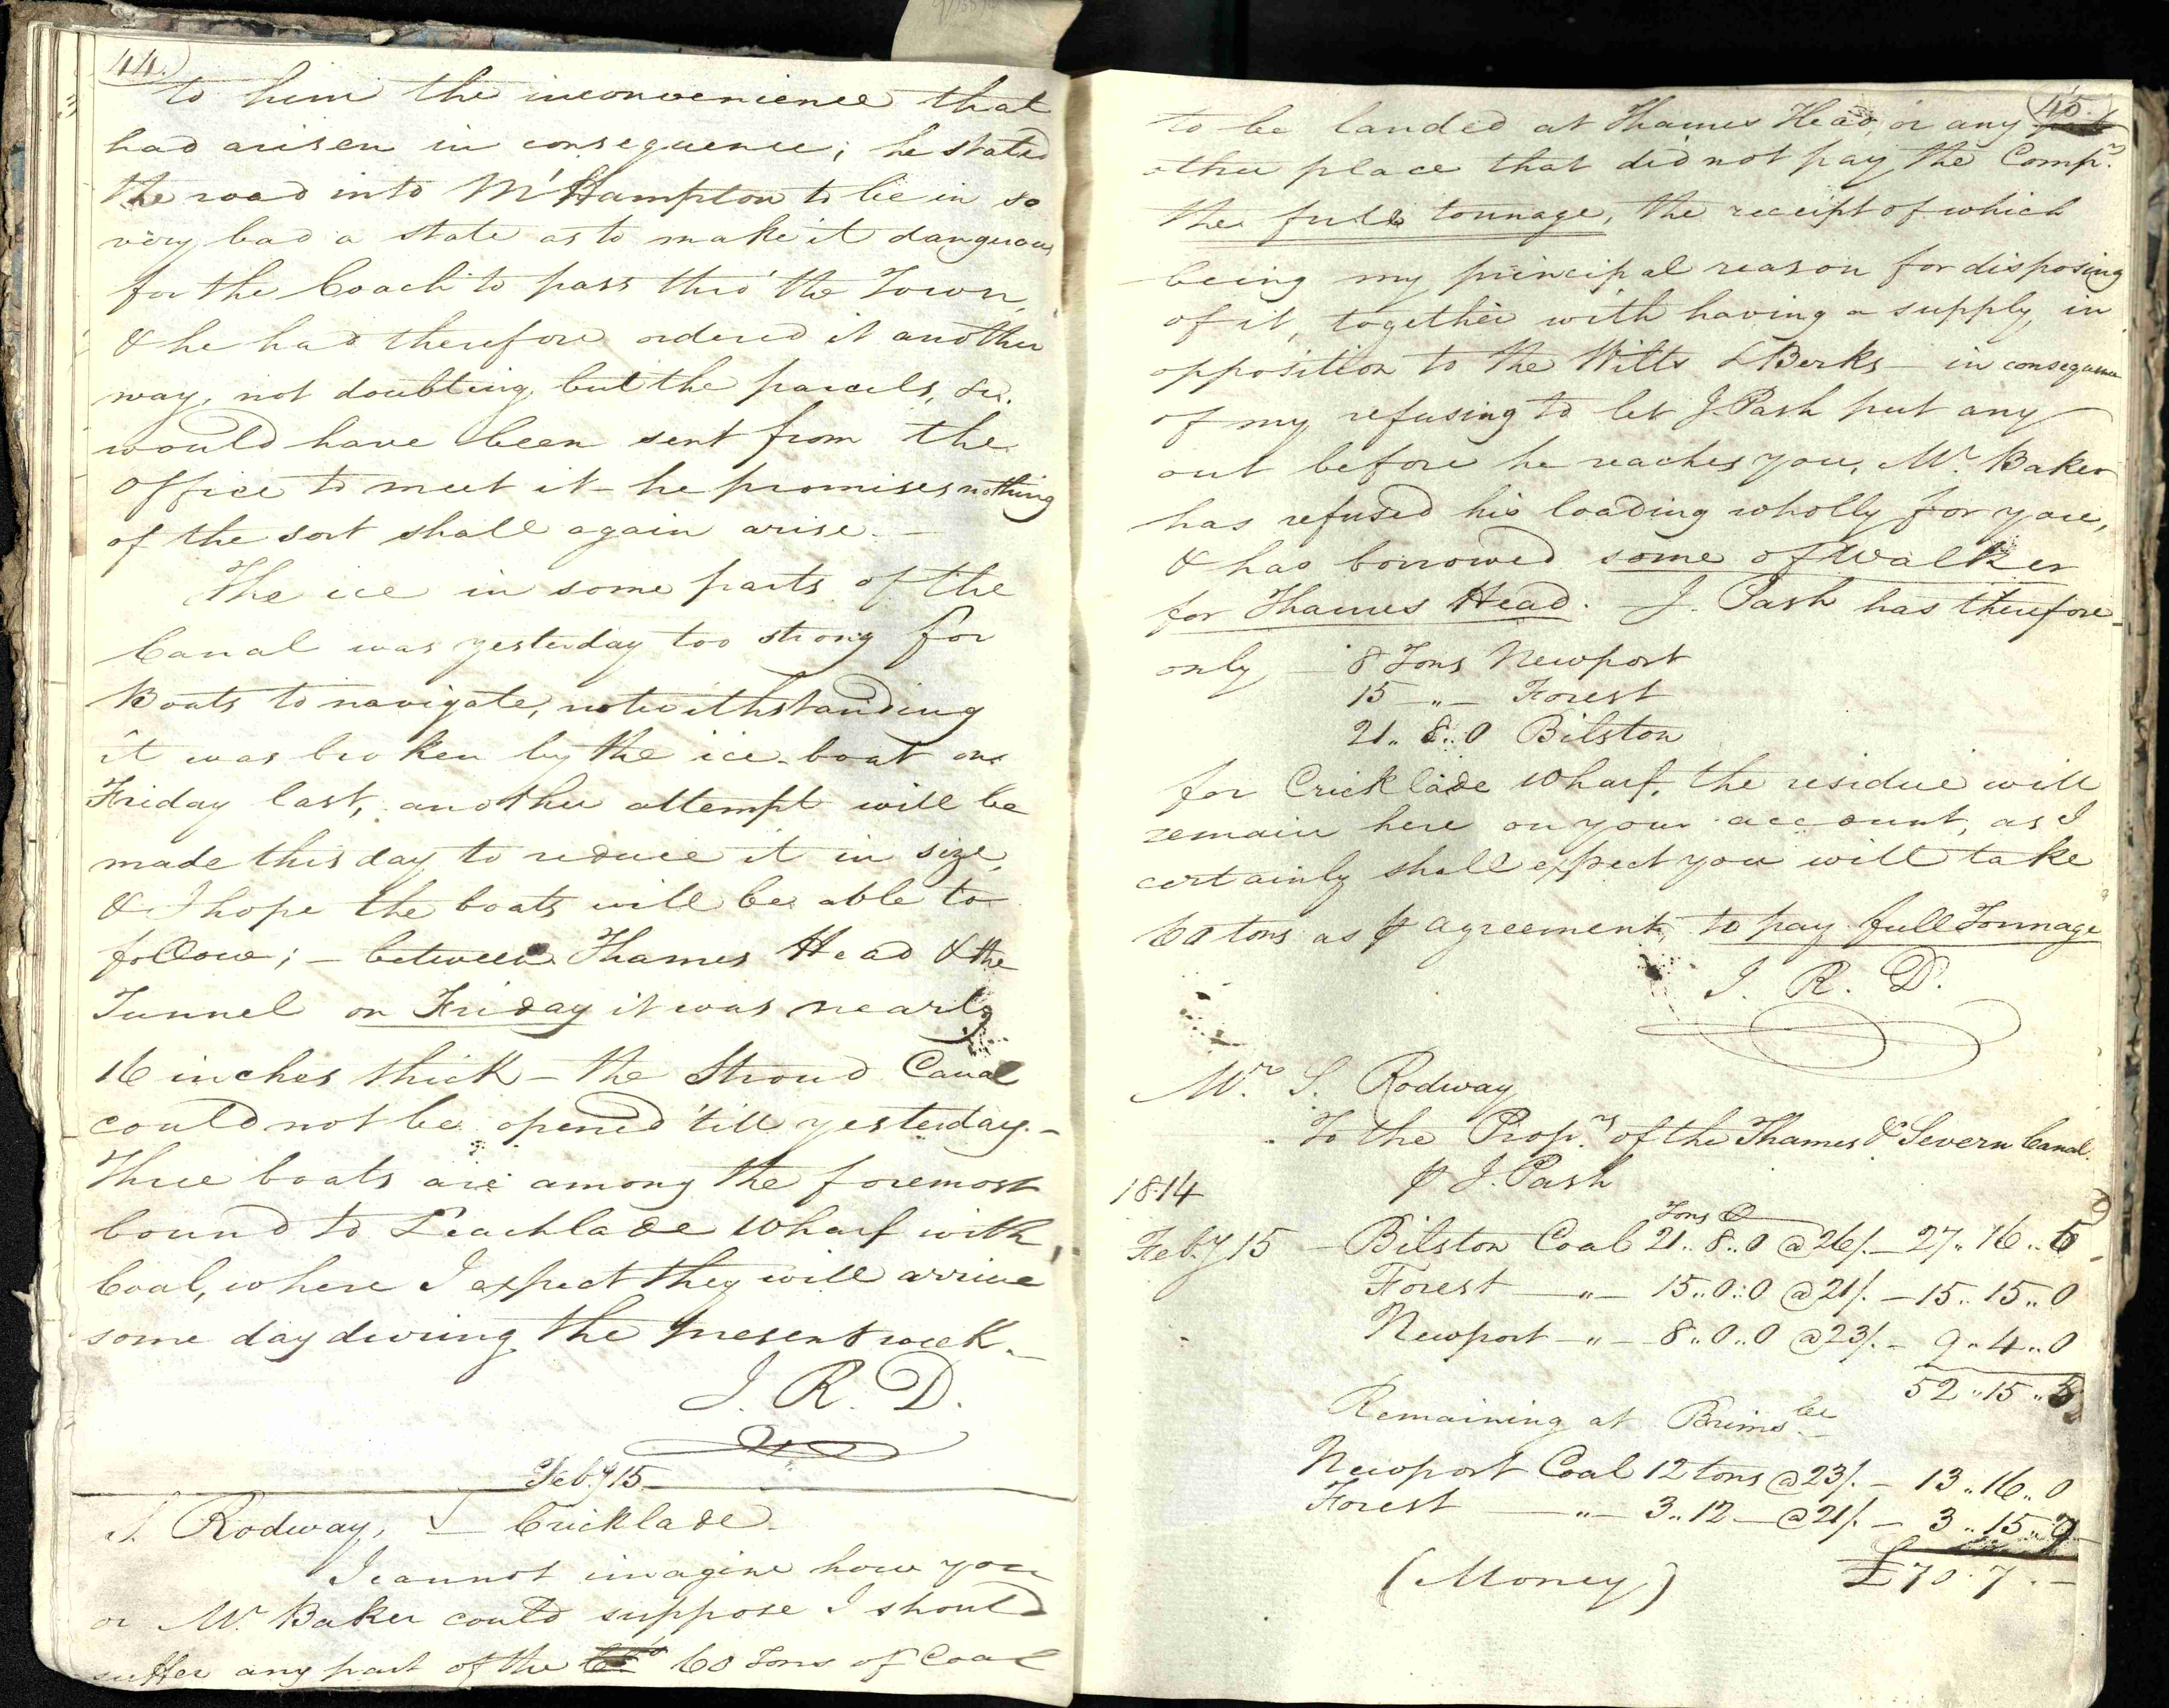 44.
to him the inconvenience that
had arisen in consequence; he stated
the road into M'Hampton to be in so
very bad a state as to make it dangerous
for the Coach to pass thro' the Town,
& he had therefore ordered it another
way, not doubting but the parcels, &c.
would have been sent from the
Office to meet it – he promises nothing
of the sort shall again arise. –
The ice in some parts of the
Canal was yesterday too strong for
Boats to navigate, notwithstanding
it was broken by the ice-boat on
Friday last, another attempt will be
made this day to reduce it in size,
& I hope the boats will be able to
follow; – between Thames Head & the
Tunnel on Friday it was nearly
16 inches thick – the Stroud Canal
could not be opened 'till yesterday. –
Three boats are among the foremost
bound to Leachlade Wharf with
Coal, where I expect they will arrive
some day during the present week. –
J. R. D.
Feby 15
S. Rodway, Cricklade.
I cannot imagine how you
or Mr. Baker could suppose I should
suffer any part of the 60 Tons of Coal
45.
to be landed at Thames Head, or any
other place that did not pay the Compy.
the full tonnage, the receipt of which
being my principal reason for disposing
of it, together with having a supply in
opposition to the Wilts & Berks – in consequence
of my refusing to let J. Pash put any
out before he reaches you, Mr. Baker
has refused his loading wholly for you,
& has borrowed some of Walker
for Thames Head. J. Pash has therefore
only – 8 Tons Newport
15 – " – Forest
21 .. 8 .. 0 Bilston
for Cricklade Wharf, the residue will
remain here on your account, as I
certainly shall expect you will take
60 tons as ⅌ agreement, to pay full Tonnage
J. R. D.
Mr. S. Rodway
To the Proprs. of the Thames & Severn Canal.
⅌ J. Pash
1814
Tons
Feby 15 – Bilston Coal 21 .. 8 .. 0 @ 26/. – 27 .. 16 .. 5
Forest – " – 15 .. 0 .. 0 @ 21/. – 15 .. 15 .. 0
Newport – " – 8 .. 0 .. 0 @ 23/. – 9 .. 4 .. 0
52 .. 15 .. 5
Remaining at Brimsbe.
Newport Coal 12 tons @ 23/. – 13 .. 16 .. 0
Forest – " – 3 .. 12 – @ 21/. – 3 .. 15 ..
(Money) £70 . 7 . –